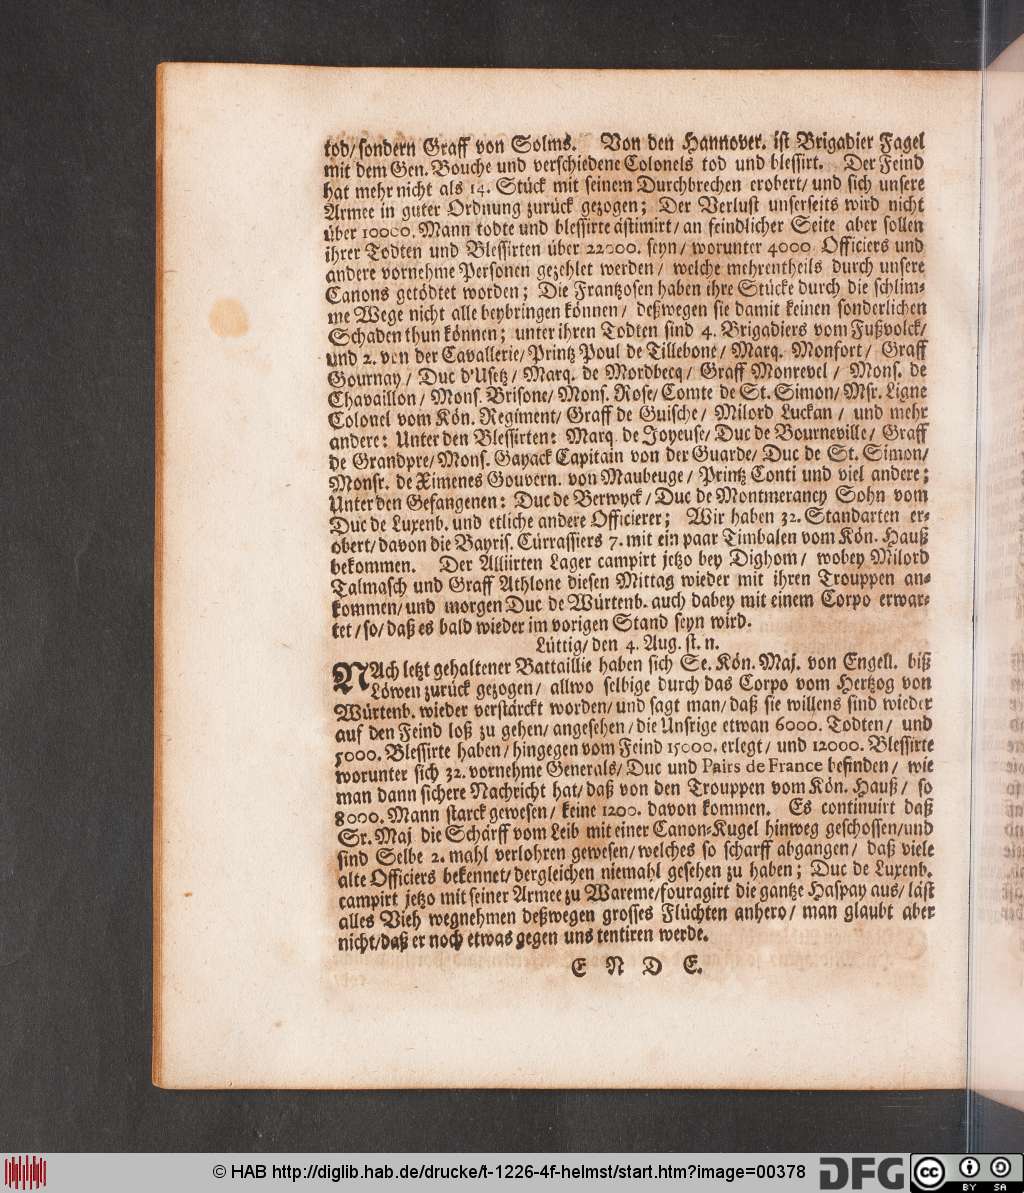 tod/ sondern Graff von Solms. Von den Hannover. ist Brigadier Fagel
mit dem Gen. Bouche und verschiedene Colonels tod und blessirt. Der Feind
hat mehr nicht als 14. Stück mit seinem Durchbrechen erobert/ und sich unsere
Armee in guter Ordnung zurück gezogen; Der Verlust unserseits wird nicht
über 10000. Mann todte und blessirte ästimirt/ an feindlicher Seite aber sollen
ihrer Todten und Blessirten über 22000. seyn/ worunter 4000 Officiers und
andere vornehme Personen gezehlet werden/ welche mehrentheils durch unsere
Canons getödtet worden; Die Frantzosen haben ihre Stücke durch die schlim-
me Wege nicht alle beybringen können/ deßwegen sie damit keinen sonderlichen
Schaden thun können; unter ihren Todten sind 4. Brigadiers vom Fußvolck/
und 2. von der Cavallerie/ Printz Poul de Tillebone/ Marq. Monfort/ Graff
Gournay/ Duc d'Usetz/ Marq. de Mordbecq/ Graff Monrevel/ Mons. de
Chavaillon/ Mons. Brisone/ Mons. Rose/ Comte de St. Simon/ Msr. Ligne
Colonel vom Kön. Regiment/ Graff de Guische/ Milord Luckan/ und mehr
andere: Unter den Blessirten: Marq. de Joyeuse/ Duc de Bourneville/ Graff
de Grandpre/ Mons. Gayack Capitain von der Guarde/ Duc de St. Simon/
Monsr. de Ximenes Gouvern. von Maubeuge/ Printz Conti und viel andere;
Unter den Gefangenen: Duc de Berwyck/ Duc de Montmerancy Sohn vom
Duc de Luxenb. und etliche andere Officierer; Wir haben 32. Standarten er-
obert/ davon die Bayris. Cürrassiers 7. mit ein paar Timbalen vom Kön. Hauß
bekommen. Der Alliirten Lager campirt jetzo bey Dighom/ wobey Milord
Talmasch und Graff Athlone diesen Mittag wieder mit ihren Trouppen an-
kommen/ und morgen Duc de Würtenb. auch dabey mit einem Corpo erwar-
tet/ so/ daß es bald wieder im vorigen Stand seyn wird.
Lüttig/ den 4. Aug. st. n.
NAch letzt gehaltener Battaillie haben sich Se. Kön. Maj. von Engell. biß
Löwen zurück gezogen/ allwo selbige durch das Corpo vom Hertzog von
Würtenb. wieder verstärckt worden/ und sagt man/ daß sie willens sind wieder
auf den Feind loß zu gehen/ angesehen/ die Unsrige etwan 6000. Todten/ und
5000. Blessirte haben/ hingegen vom Feind 15000. erlegt/ und 12000. Blessirte
worunter sich 32. vornehme Generals/ Duc und Pairs de France befinden/ wie
man dann sichere Nachricht hat/ daß von den Trouppen vom Kön. Hauß/ so
8000. Mann starck gewesen/ keine 1200. davon kommen. Es continuirt daß
Sr. Maj die Schärff vom Leib mit einer Canon-Kugel hinweg geschossen/und
sind Selbe 2. mahl verlohren gewesen/ welches so scharff abgangen/ daß viele
alte Officiers bekennet/ dergleichen niemahl gesehen zu haben; Duc de Luxenb.
campirt jetzo mit seiner Armee zu Wareme/ fouragirt die gantze Haspay aus/ läst
alles Vieh wegnehmen deßwegen grosses Flüchten anhero/ man glaubt aber
nicht/ daß er noch etwas gegen uns tentiren werde.
E N D E.
© HAB http://diglib.hab.de/drucke/t-1226-4f-helmst/start.htm?image=00378
DFG
cc
BY SA